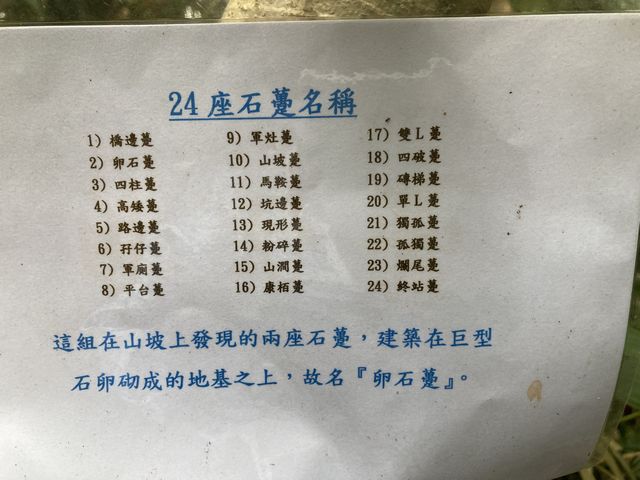 24座石躉名稱
1) 橋邊躉
2) 卵石躉
3) 四柱躉
4) 高矮躉
5) 路邊躉
6) 孖仔躉
7) 軍廟躉
8) 平台躉
9) 軍灶躉
10) 山坡躉
11) 馬鞍躉
12) 坑邊躉
13) 現形躉
14) 粉碎躉
15) 山澗躉
16) 康栢躉
17) 雙L躉
18) 四破躉
19) 磚梯躉
20) 單L躉
21) 獨孤躉
22) 孤獨躉
23) 爛尾躉
24) 終站躉
這組在山坡上發現的兩座石躉，建築在巨型
石卵砌成的地基之上，故名『卵石躉』。